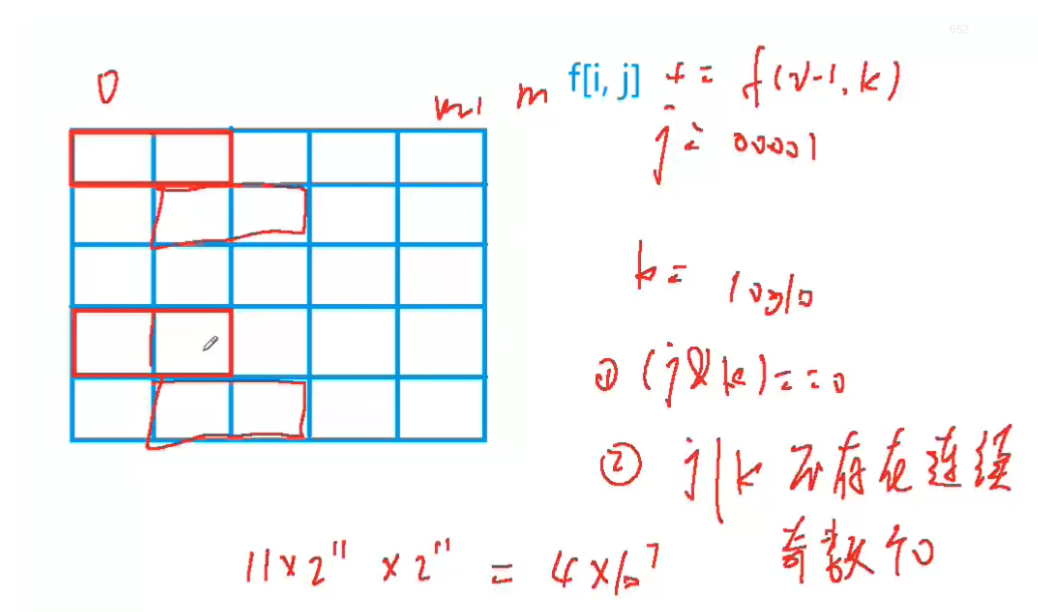 652
0
m-1 m f[i, j] += f(i-1, k)
j = 00001
k = 10010
① (j&k)==0
② j|k 不存在连续
奇数个0
11×2^11 ×2^11 = 4×10^7